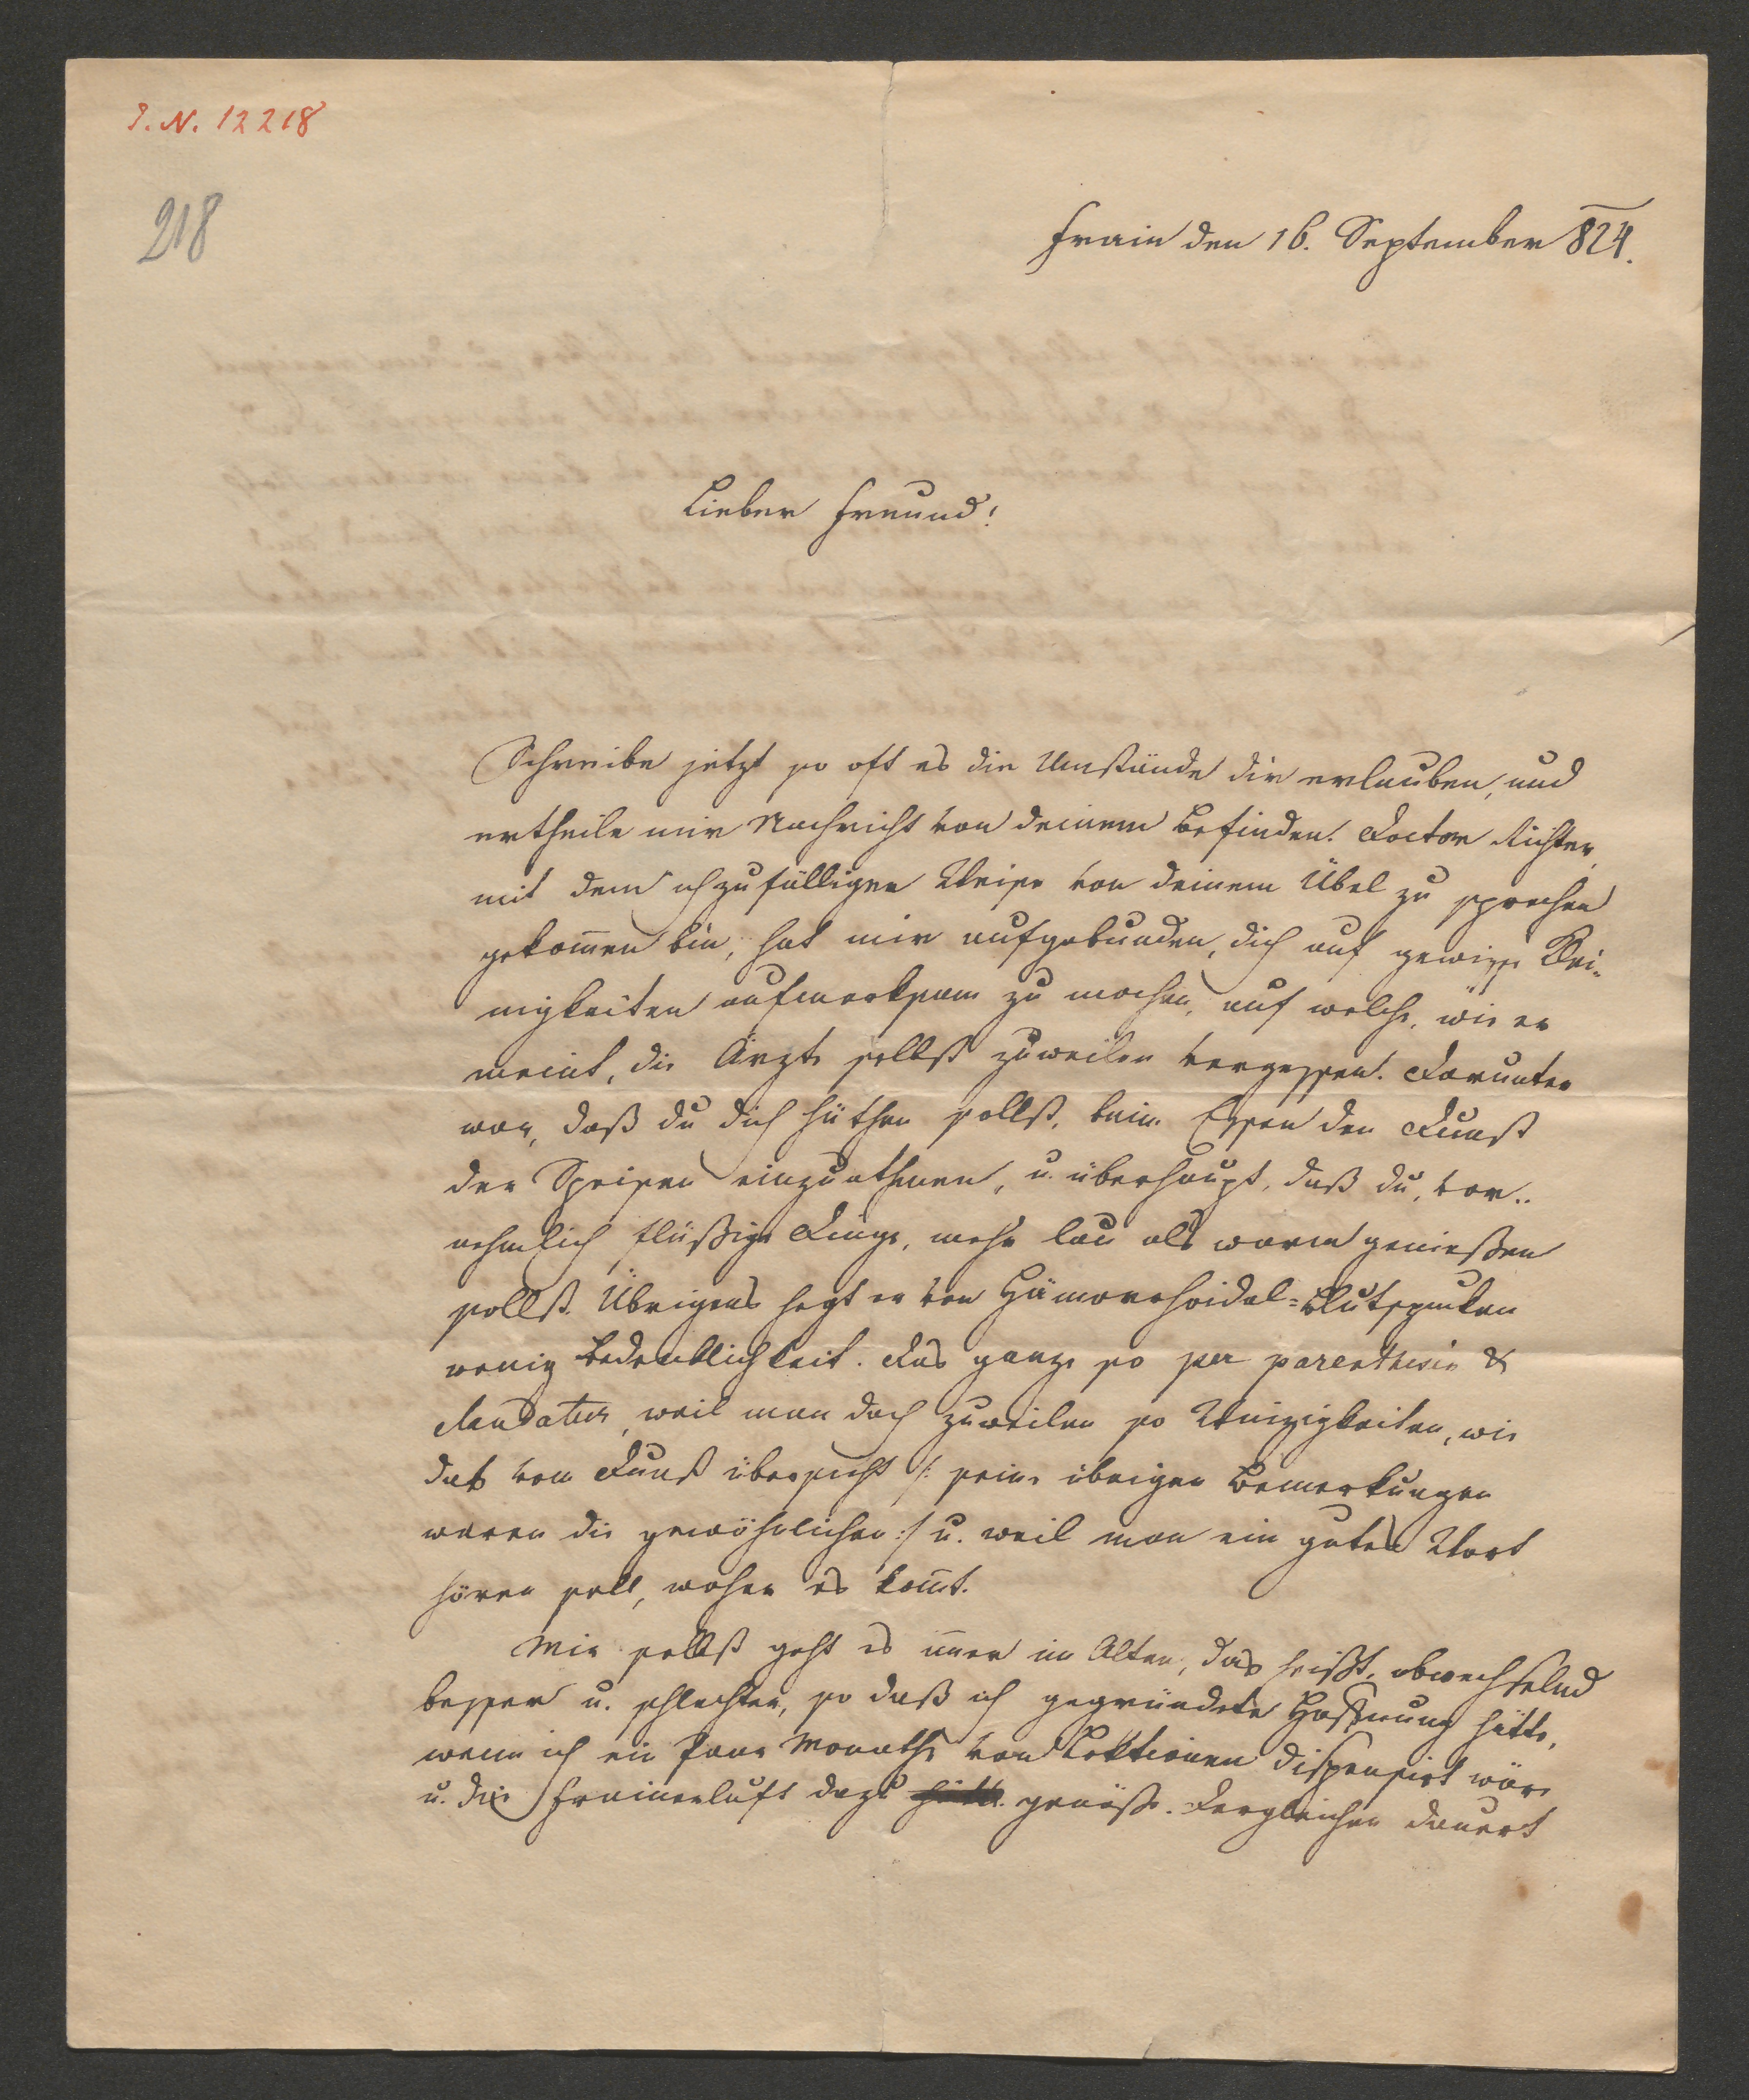 I. N. 12218
218
Frain den 16. September 824.
Lieber Freund!
Schreibe jetzt so oft es die Umstände dir erlauben, und
ertheile mir Nachricht von deinem Befinden. Doctor Richter,
mit dem ich zufälliger Weise von deinem Übel zu sprechen
gekom̅en bin, hat mir aufgebunden, dich auf gewisse Klei-
nigkeiten aufmerksam zu machen, auf welche, wie er
meint, die Ärzte selbst zuweilen vergessen. Darunter
war, daß du dich hüthen sollst, beim Essen den Dunst
der Speisen einzuathmen, u. überhaupt, daß du, vor-
nehmlich flüßige Dinge, mehr lau als warm genießen
sollst. Übrigens hegt er von Hämorrhoidal=Blutspucken
wenig Bedenklichkeit. Das ganze so per parenthesin &
claudatur, weil man doch zuweilen so Winzigkeiten, wie
das vom Dunst übersieht /: seine übrigen Bemerkungen
waren die gewöhnlichen :/ u. weil man ein gutes Wort
hören soll, woher es kom̅t.
Mir selbst geht es im̅er im Alten, das heißt, abwechselnd
besser u. schlechter, so daß ich gegründete Hoffnung hätte,
wenn ich ein Paar Monathe von Lektionen dispensirt wäre
u. die Frainerluft dazu hätte genöße. Dergleichen dauert